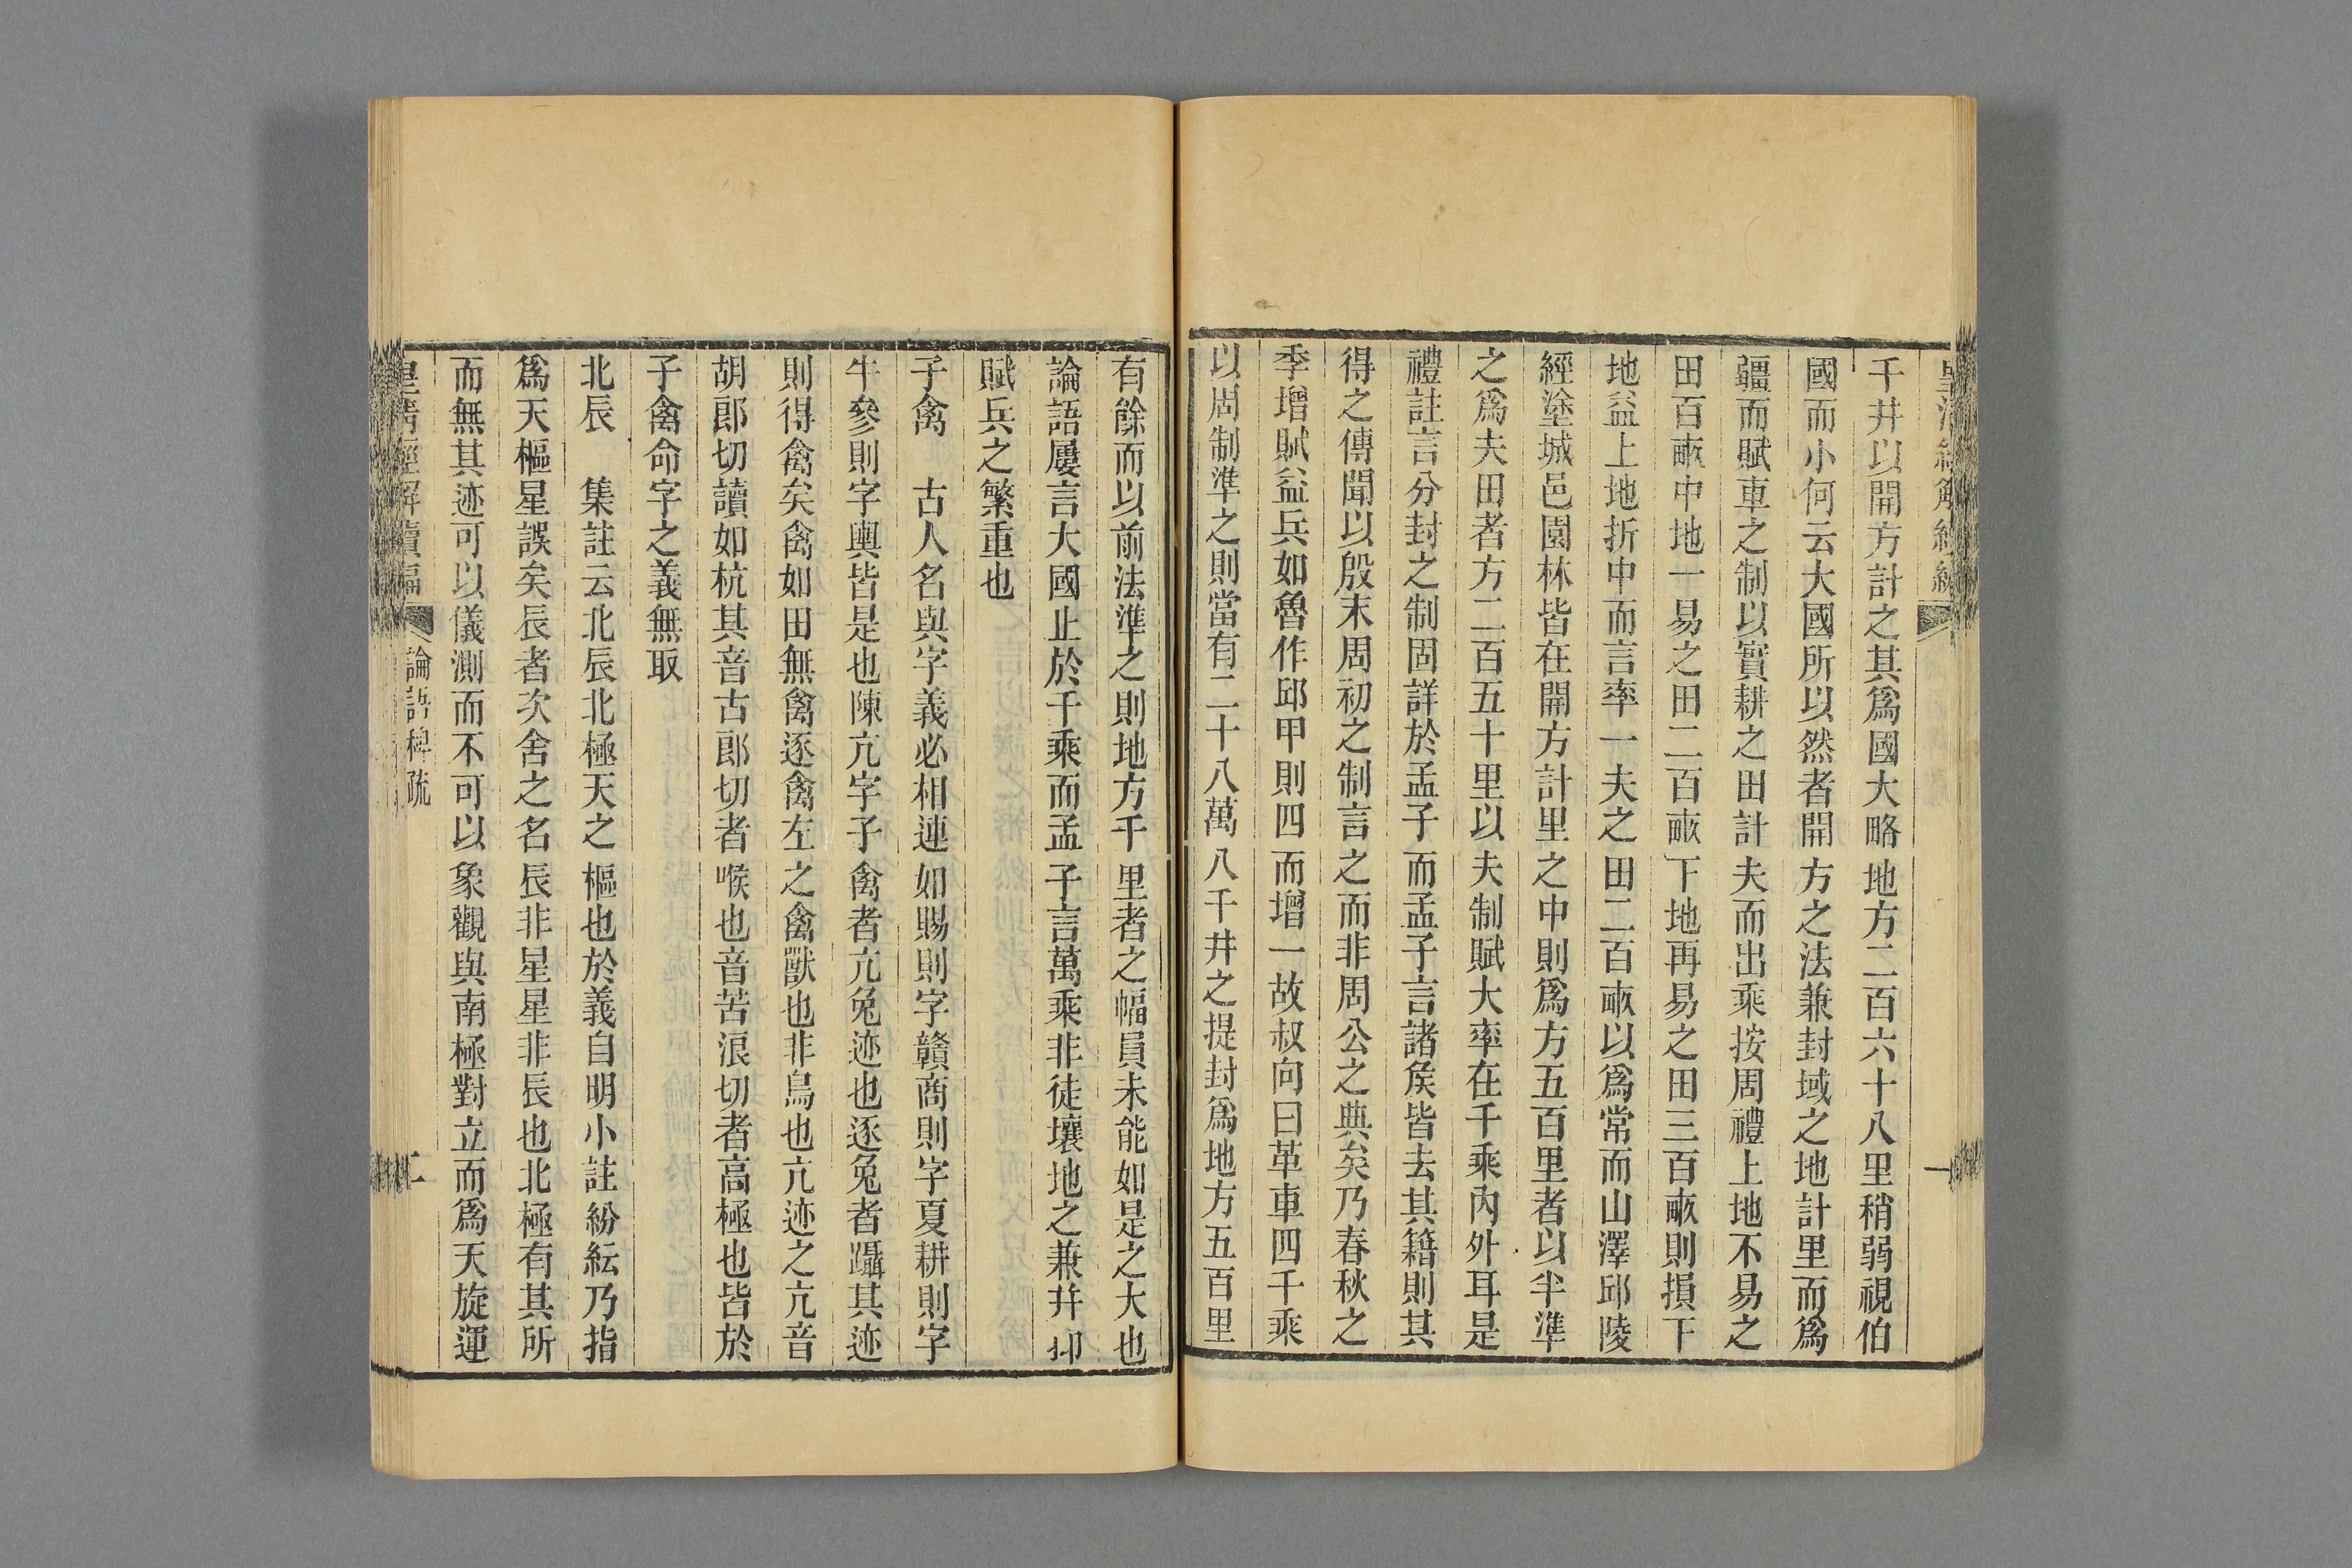 千井以開方計之其爲國大略地方二百六十八里稍弱視伯
國而小何云大國所以然者開方之法兼封域之地計里而爲
疆而賦車之制以實耕之田計夫而出乘按周禮上地不易之
田百畞中地一易之田二百畞下地再易之田三百畞則損下
地益上地折中而言率一夫之田二百畞以爲常而山澤邱陵
經塗城邑園林皆在開方計里之中則爲方五百里者以半準
之爲夫田者方二百五十里以夫制賦大率在千乘內外耳是
禮註言分封之制固詳於孟子而孟子言諸矦皆去其籍則其
得之傳聞以殷末周初之制言之而非周公之典矣乃春秋之
季增賦益兵如魯作邱甲則四而增一故叔向曰革車四千乘
以周制準之則當有二十八萬八千井之提封爲地方五百里
有餘而以前法準之則地方千里者之幅員未能如是之大也
論語屢言大國止於千乘而孟子言萬乘非徒壤地之兼幷抑
賦兵之繁重也
子禽　古人名與字義必相連如賜則字贛商則字夏耕則字
牛參則字輿皆是也陳亢字子禽者亢兔迹也逐兔者躡其迹
則得禽矣禽如田無禽逐禽左之禽獸也非鳥也亢迹之亢音
胡郎切讀如杭其音古郎切者喉也音苦浪切者高極也皆於
子禽命字之義無取
北辰　集註云北辰北極天之樞也於義自明小註紛紜乃指
爲天樞星誤矣辰者次舍之名辰非星星非辰也北極有其所
而無其迹可以儀測而不可以象觀與南極對立而爲天旋運
皇清經解續編
論語稗疏
二